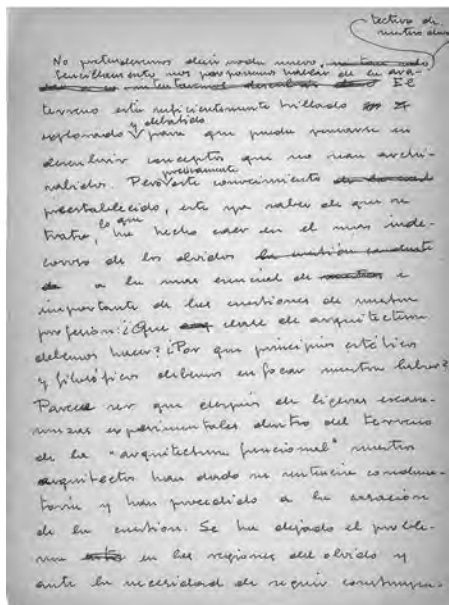 tectura de
nuestros días.
No pretendemos decir nada nuevo,
Sencillamente nos proponemos hablar de la
El
terreno está suficientemente trillado
explorado y debatido para que pueda pensarse en
descubrir conceptos que no sean archi-
sabidos. Pero precisamente este conocimiento
preestablecido, este ya saber de que se
trata, lo que ha hecho caer en el mas inde-
coroso de los olvidos la cuestión
a la mas esencial de e
importante de las cuestiones de nuestra
profesión: ¿Que clase de arquitectura
debemos hacer? ¿Por que principios estéticos
y filosóficos debemos enfocar nuestra labor?
Parece ser que después de ligeras escara-
muzas experimentales dentro del terreno
de la "arquitectura funcional" nuestros
arquitectos han dado su sentencia condena-
toria y han procedido a la
de la cuestión. Se ha dejado el proble-
ma en las regiones del olvido y
ante la necesidad de seguir